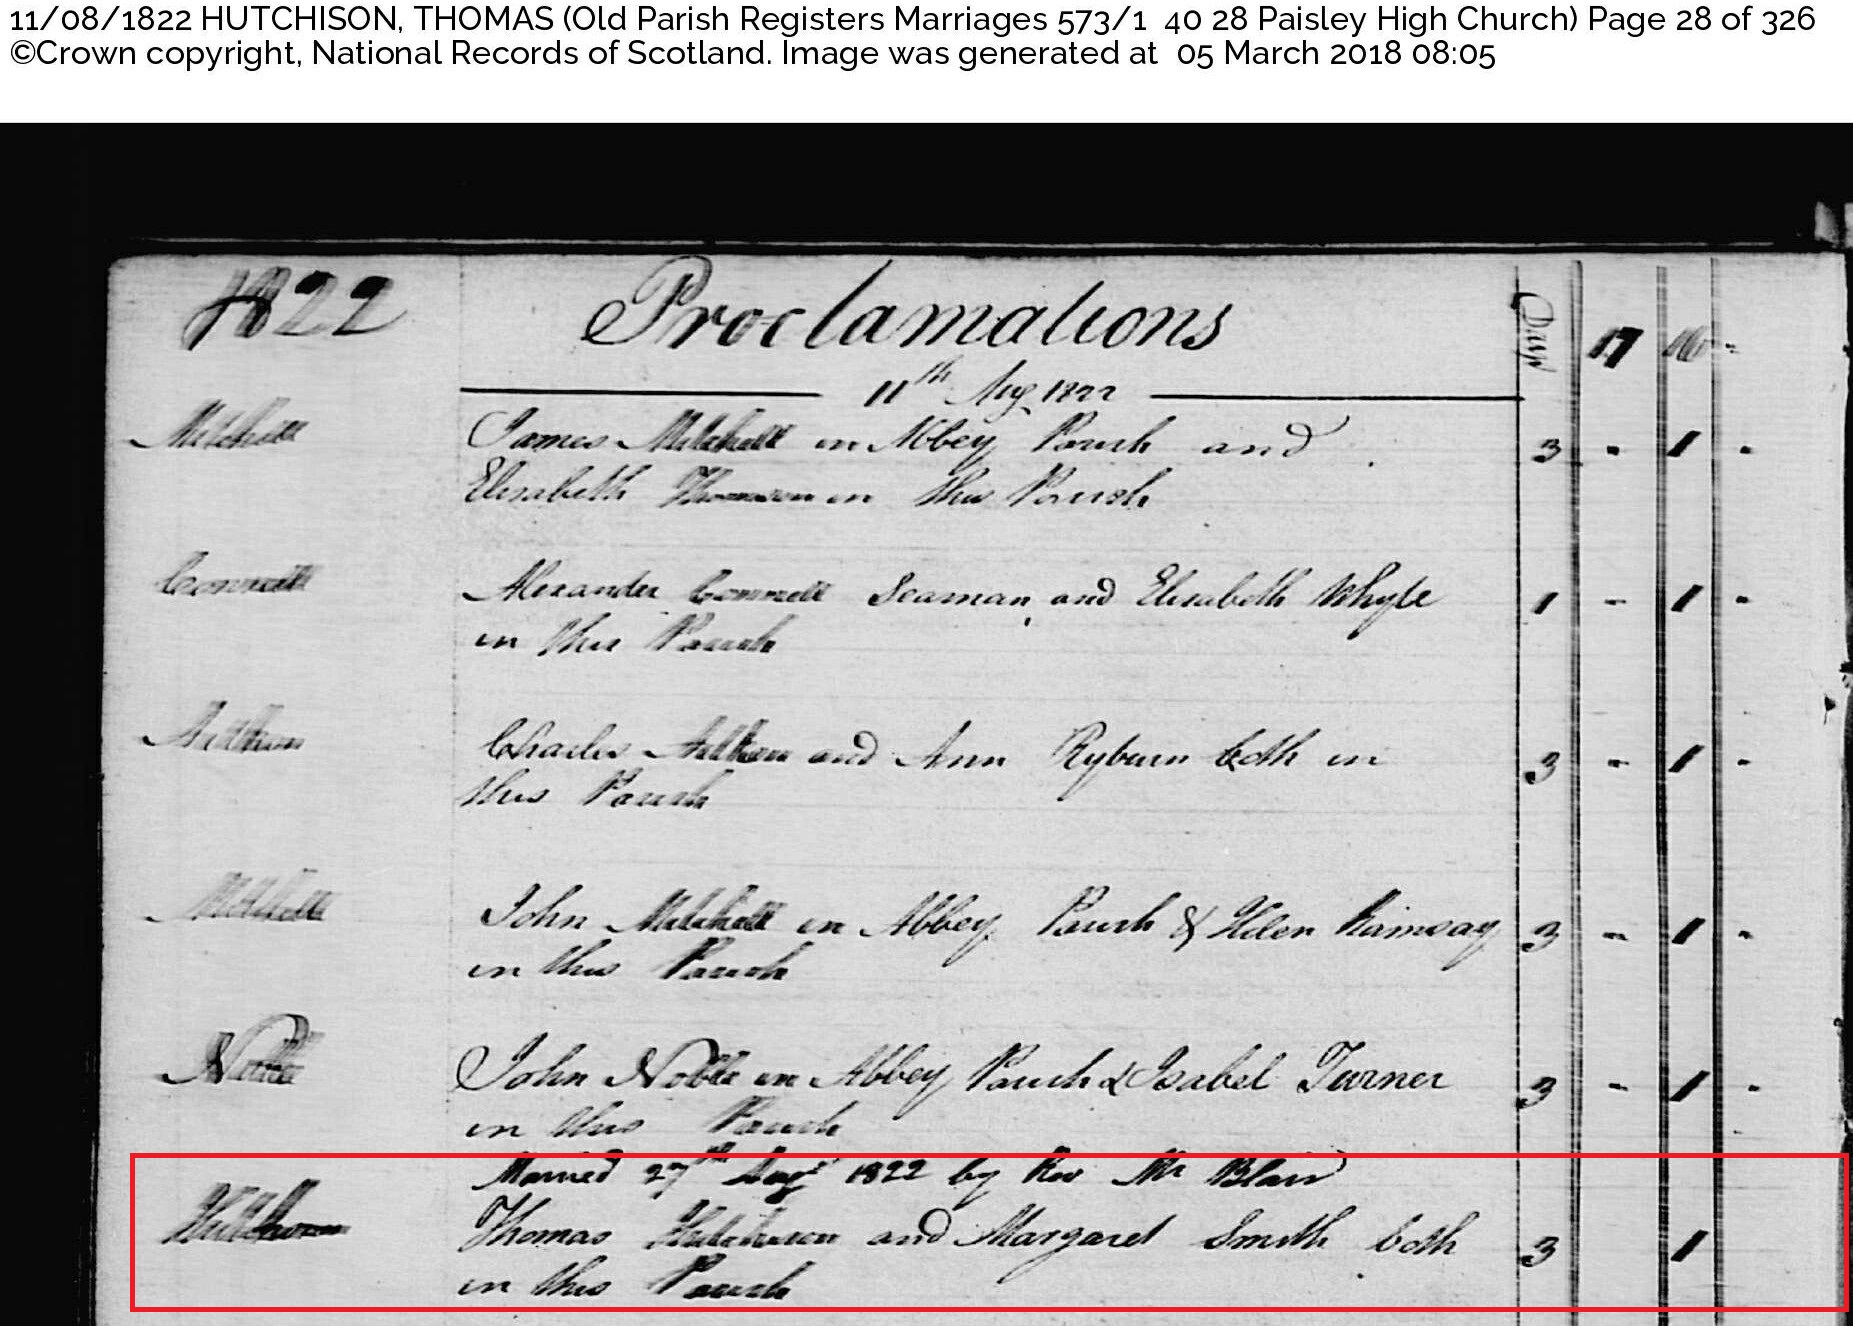 11/08/1822 HUTCHISON, THOMAS (Old Parish Registers Marriages 573/1 40 28 Paisley High Church) Page 28 of 326
©Crown copyright, National Records of Scotland. Image was generated at 05 March 2018 08:05
1822 Proclamations Days 17 16
11th Aug 1822
Mitchell James Mitchell in Abbey Parish and 3 - 1 -
Elisabeth Thomson in this Parish
Connell Alexander Connell Seaman, and Elisabeth Whyte 1 - 1 -
in this Parish
Aitken Charles Aitken and Ann Ryburn both in 3 - 1 -
this Parish
Mitchell John Mitchell in Abbey Parish & Helen Ramsay 3 - 1 -
in this Parish
Noble John Noble in Abbey Parish & Isabel Turner 3 - 1 -
in this Parish
Married 27th Augt 1822 by Rev Mr Blair
Hutchison Thomas Hutchison and Margaret Smith both 3 1
in this Parish